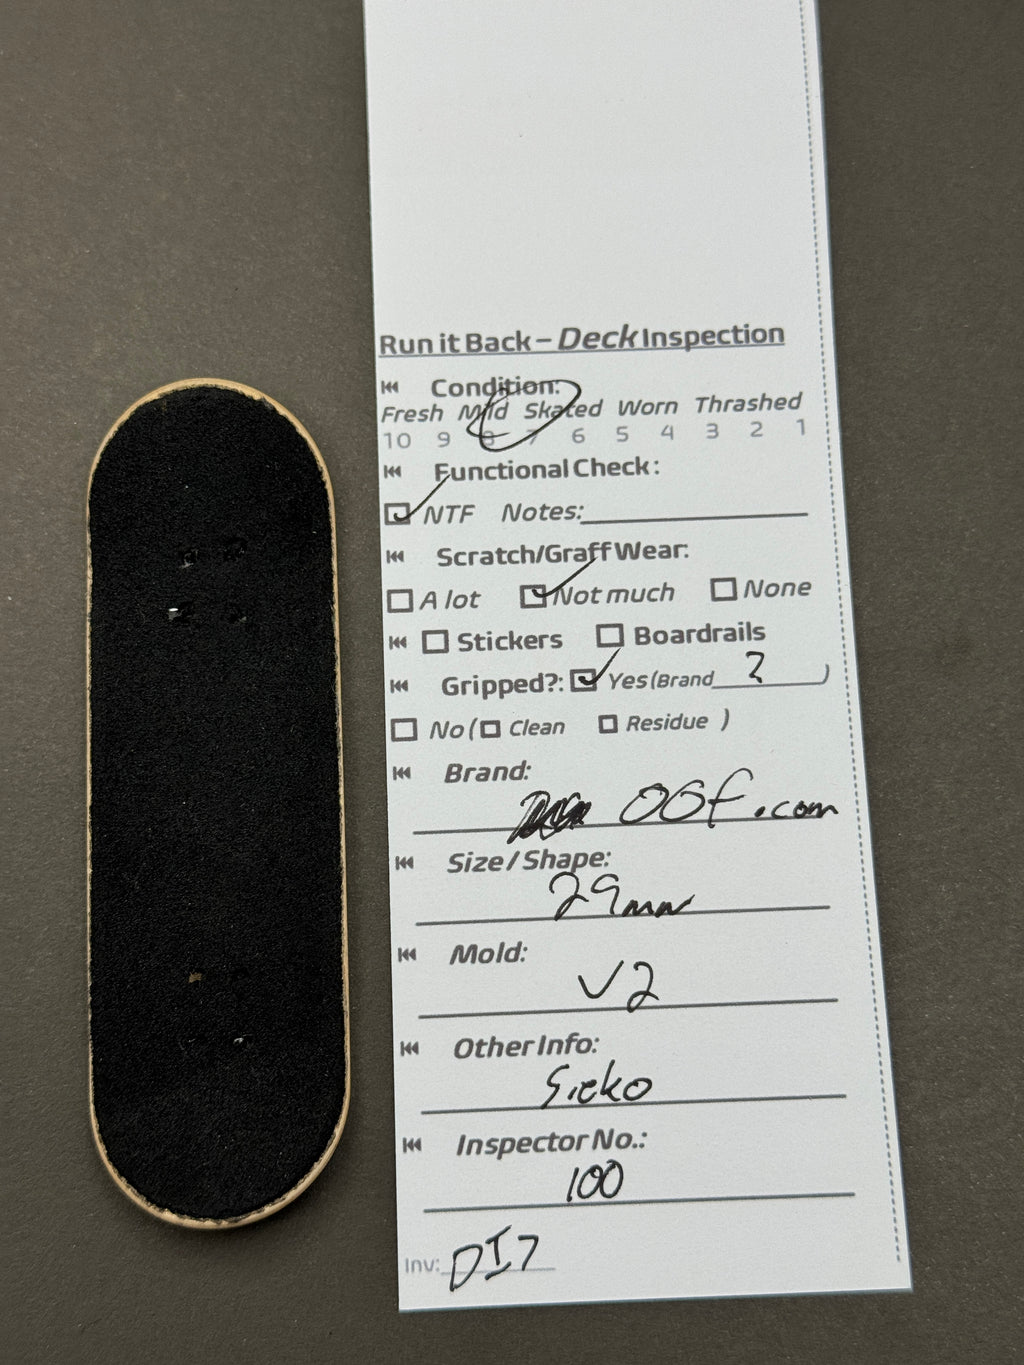 Run it Back – Deck Inspection
Condition:
Fresh Mild Skated Worn Thrashed
10 9 8 7 6 5 4 3 2 1
Functional Check:
NTF Notes:
Scratch/Graff Wear:
A lot Not much None
Stickers Boardrails
Gripped?: Yes (Brand ? )
No ( Clean Residue )
Brand:
OGf.com
Size / Shape:
29mm
Mold:
V2
Other Info:
Sieko
Inspector No.:
100
Inv: DI7